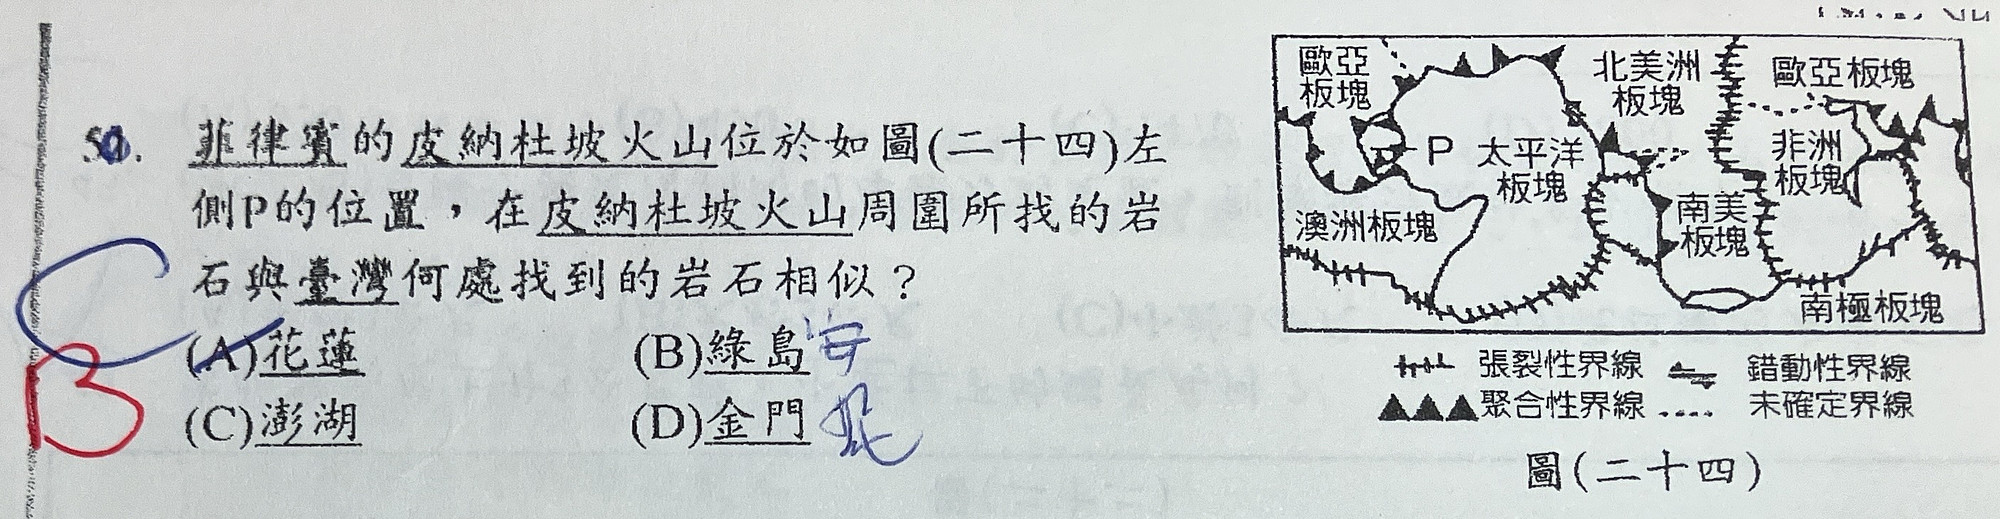 50. 菲律賓的皮納杜坡火山位於如圖(二十四)左
側P的位置，在皮納杜坡火山周圍所找的岩
石與臺灣何處找到的岩石相似？
(A)花蓮 (B)綠島 安
(C)澎湖 (D)金門 花
C
B
歐亞
板塊
北美洲
板塊
歐亞板塊
P
太平洋
板塊
非洲
板塊
澳洲板塊
南美
板塊
南極板塊
張裂性界線 錯動性界線
聚合性界線 未確定界線
圖(二十四)